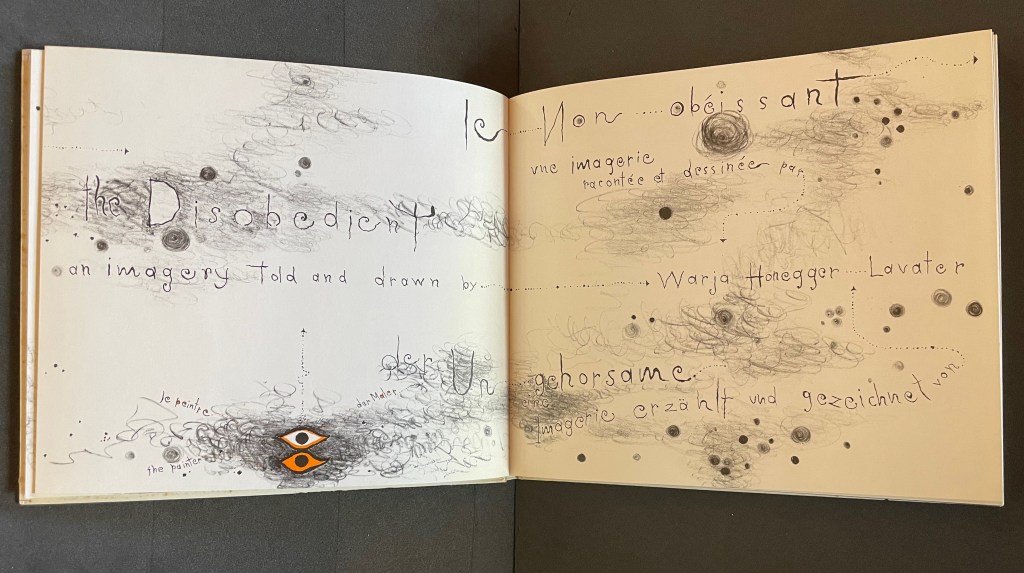 le Non obéissant
une imagerie
racontée et dessinée par
the Disobedient
an imagery told and drawn by Warja Honegger Lavater
der Un gehorsame
eine
Imagerie erzählt und gezeichnet von
le peintre
der Maler
the painter